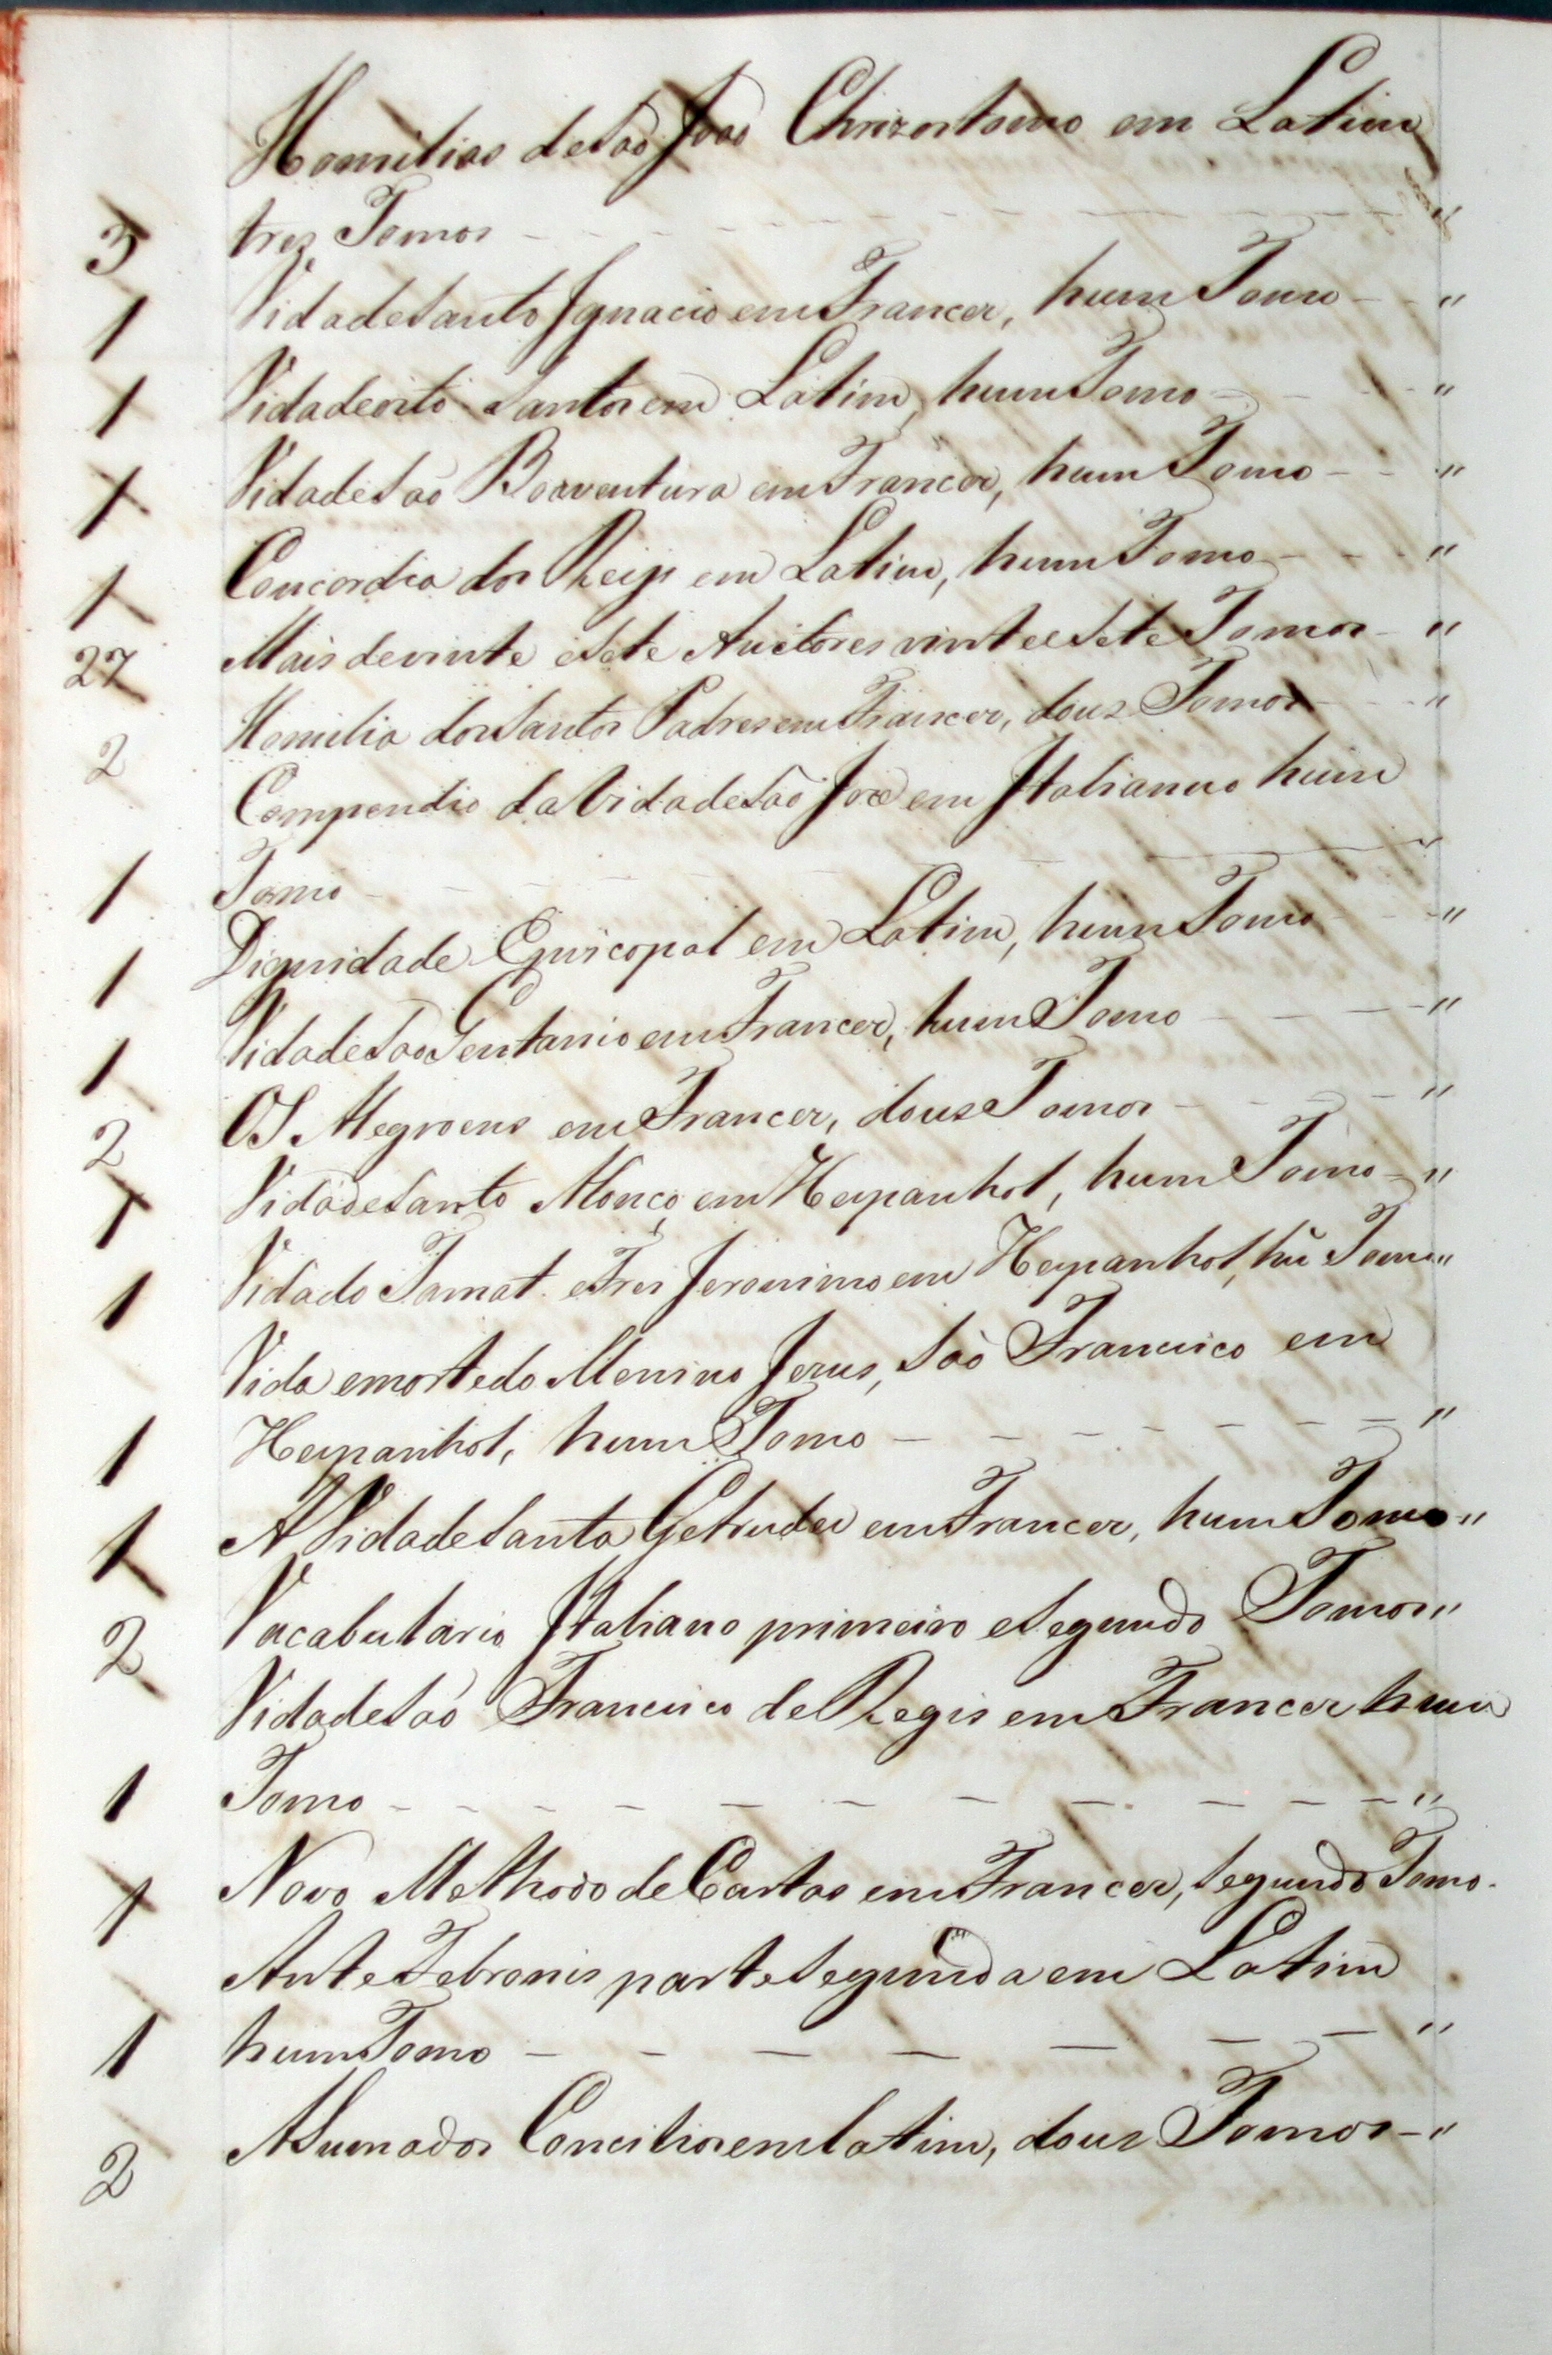 Homilias de São João Chrizostomo em Latim
3 tres Tomos - - - - - - - - - "
1 Vida de Santo Ignacio em Francez, hum Tomo - - "
1 Vida de oito Santos em Latim, hum Tomo - - - "
1 Vida de São Boaventura em Francez, hum Tomo - - "
1 Concordia dos Reijs em Latim, hum Tomo - - - "
27 Mais de vinte e Sete Auctores vinte e Sete Tomos - "
2 Homilia dos Santos Padres em Francez, dous Tomos - - "
Compendio da Vida de São José em Italianno hum
1 Tomo - - - - - - - "
1 Dignidade Episcopal em Latim, hum Tomo - - "
1 Vida de São em Francez, hum Tomo - - - - "
2 OS em Francez, dous Tomos - - - - "
1 Vida de Santo em Hespanhol, hum Tomo - "
1 Vida do e Frei Jeronimo em Hespanhol, hũ Tomo "
Vida e morte do Menino Jezus, São Francisco em
1 Hespanhol, hum Tomo - - - - - - - "
1 A Vida de Santa Getrudes em Francez, hum Tomo - "
2 Vacabulario Italiano primeiro e Segundo Tomos "
Vida de São Francisco de Regis em Francez hum
1 Tomo - - - - - - - - - - - "
1 Novo Methodo de Cartas em Francez, Segundo Tomo -
Ante Febronis parte Segunda em Latim
1 hum Tomo - - - - - - - "
2 A Suma dos Concilios em latim, dous Tomos - "